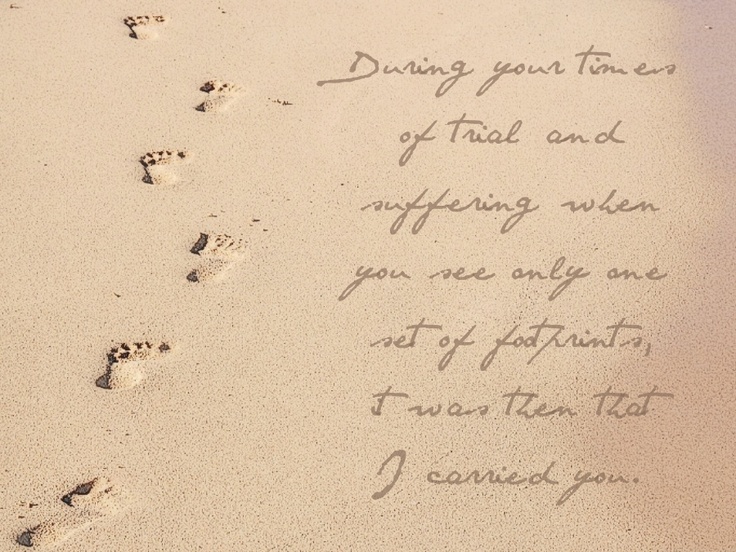 During your times
of trial and
suffering when
you see only one
set of footprints,
I was then that
I carried you.